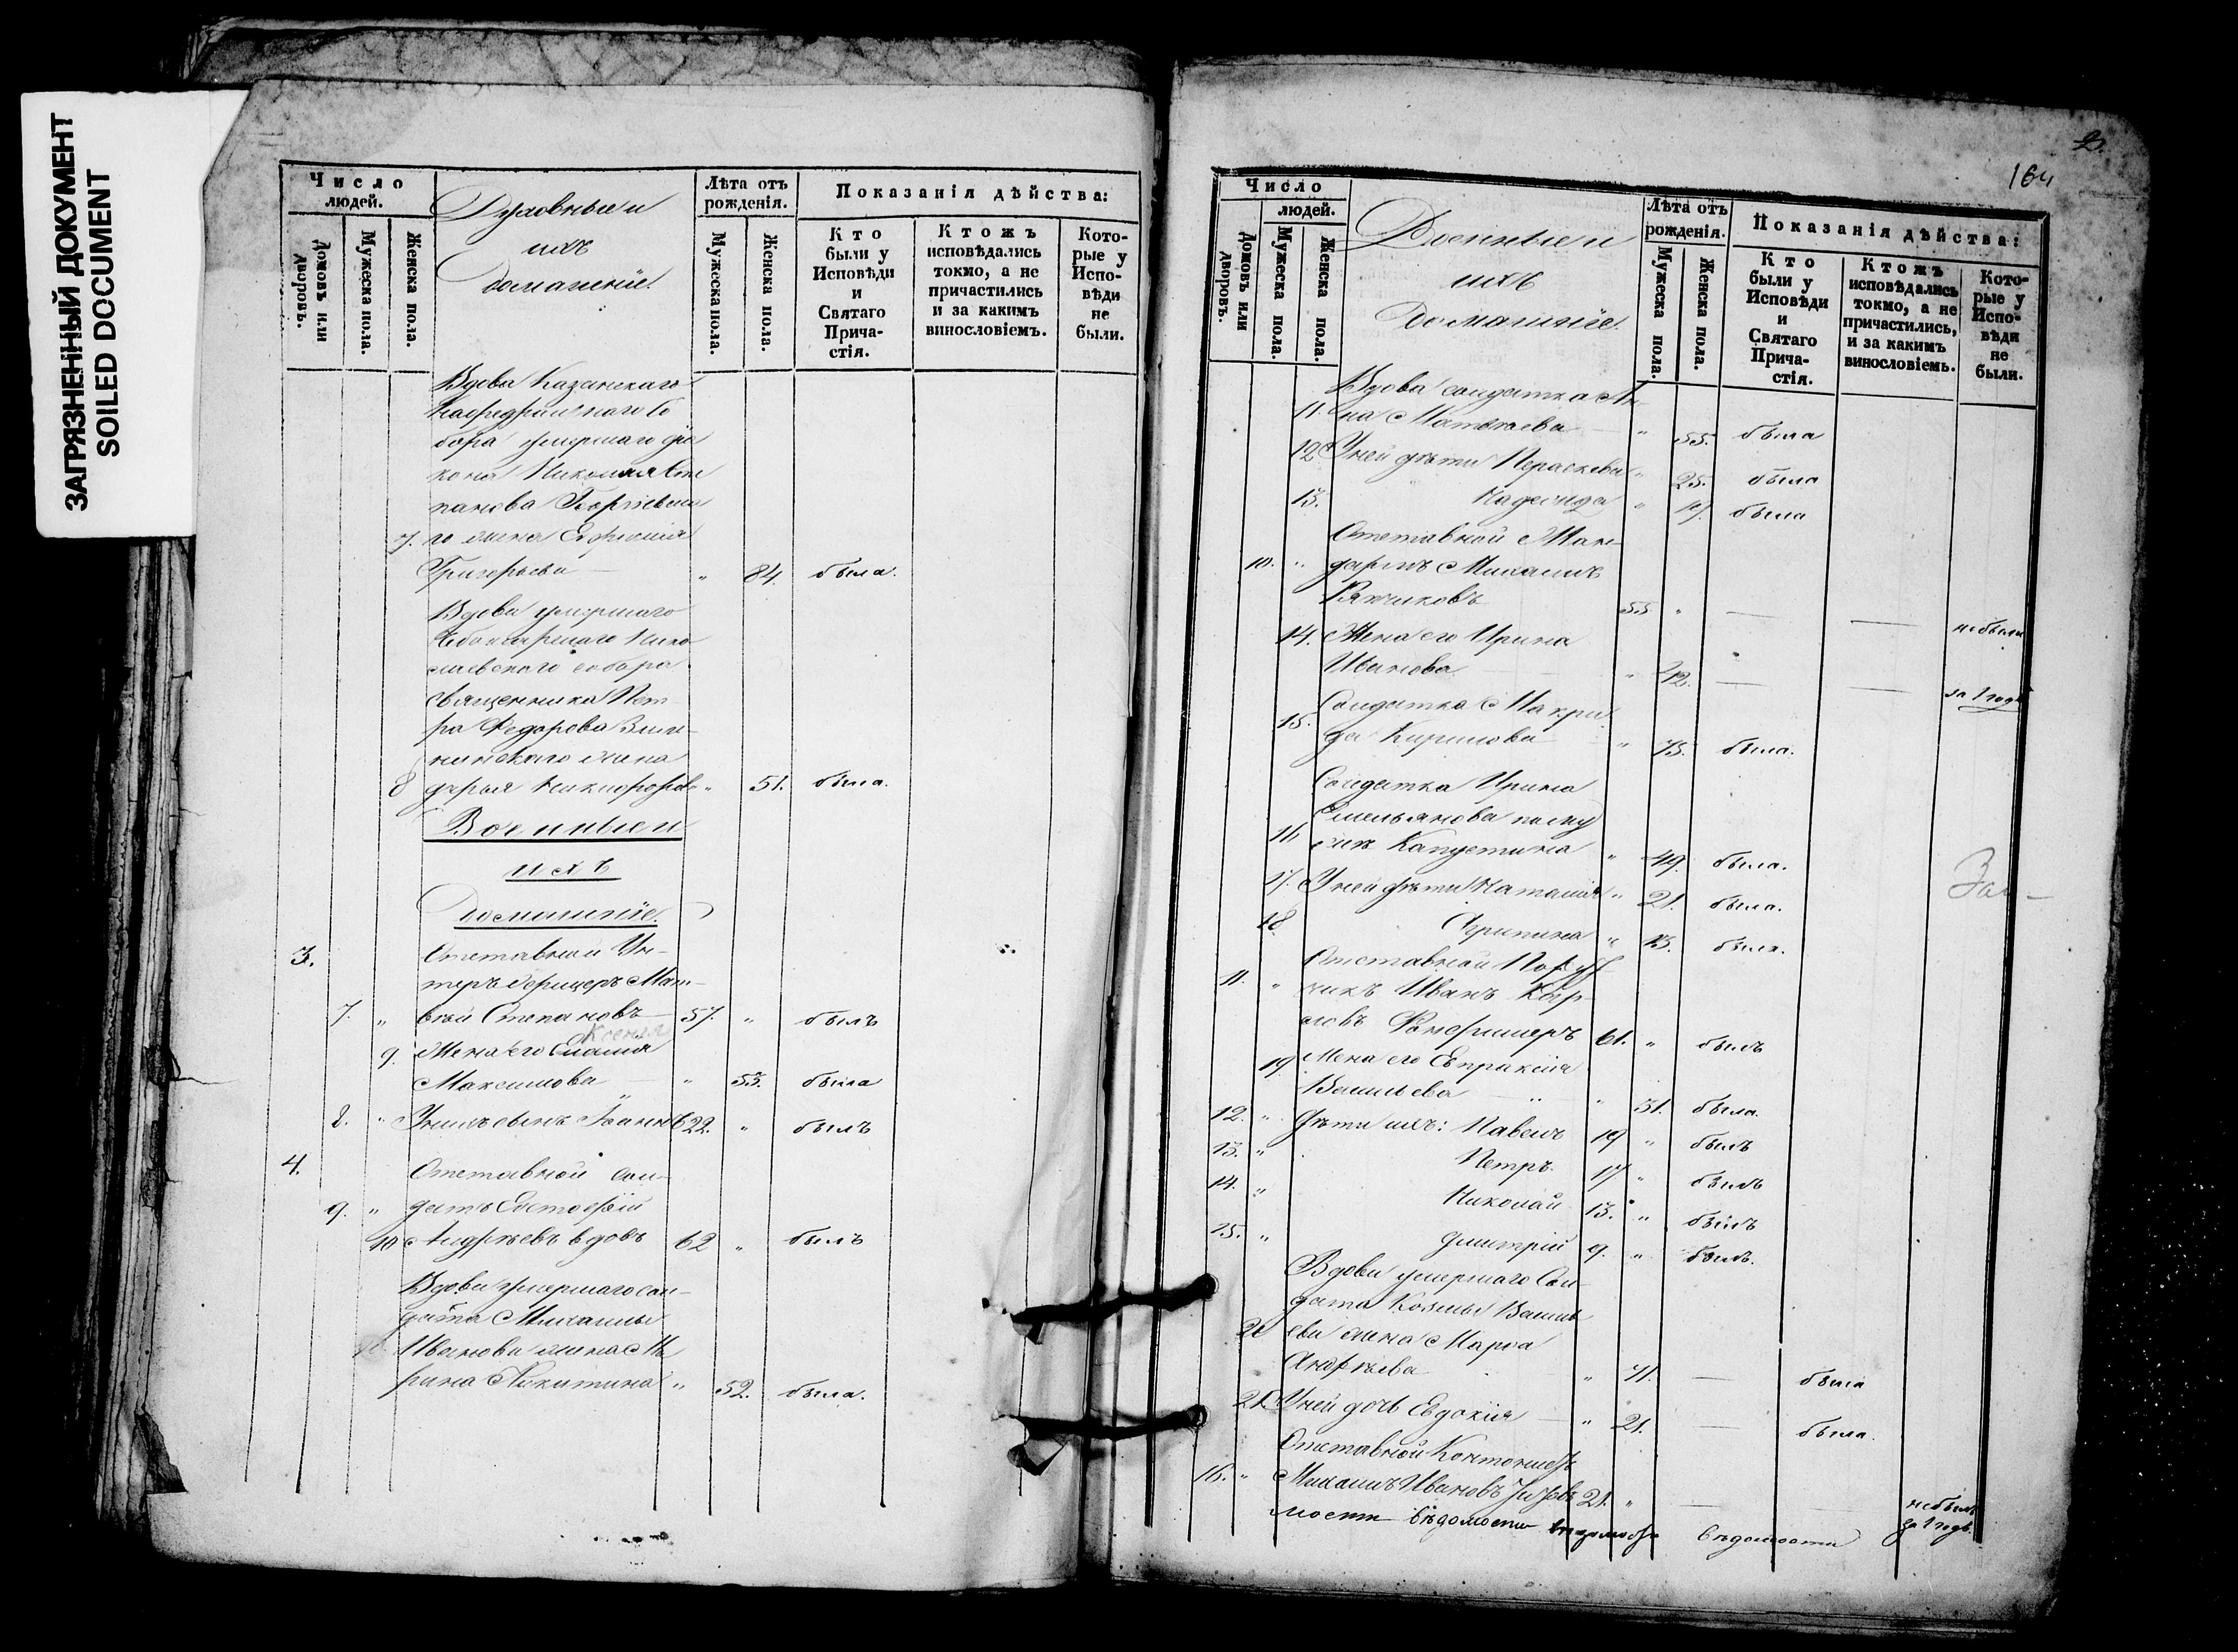 ЗАГРЯЗНЕННЫЙ ДОКУМЕНТ
SOILED DOCUMENT
Число людей.
Домовъ или дворовъ.
Мужеска пола.
Женска пола.
Духовныи и
ихъ
домашніе.
Лѣта отъ рожденія.
Мужеска пола.
Женска пола.
Показанія дѣйства:
Кто были у Исповѣди и Святаго Причастія.
Ктожъ исповѣдались токмо, а не причастились и за какимъ винословіемъ.
Которые у Исповѣди не были.
Вдова Казанскаго
Кафедральнаго Со
бора умершаго діа
кона Николая Сте
панова
7. го жена Ефросинія
Григорьева — „ 84. была.
Вдова умершаго
Чебоксарскаго Нико
лаевскаго собора
священника Пет
ра Федорова
жена
8 Дарья Никифорова „ 51. была.
Военныи и
ихъ
Домашніе.
3. Отставной Ун-
теръ офицеръ Мат-
7. „ вѣй Степановъ — 57. „ былъ
Ксенія
9. Жена его
Максимова — „ 53. была
8. „ У нихъ сынъ Іоаннъ 22. „ былъ
4. Отставной сол-
9. „ датъ Евстафій
10 Андреевъ вдовъ 62 „ былъ
Вдова умершаго сол-
дата Михаилы
Иванова жена Ма
рина Никитина „ 52. была.
2.
164
Число людей.
Домовъ или дворовъ.
Мужеска пола.
Женска пола.
Военныи и
ихъ
Домашніе.
Лѣта отъ рожденія.
Мужеска пола.
Женска пола.
Показанія дѣйства:
Кто были у Исповѣди и Святаго Причастія.
Ктожъ исповѣдались токмо, а не причастились, и за какимъ винословіемъ.
Которые у Исповѣди не были.
Вдова солдатка Ан-
11. на Матвѣева — „ 55. была
12 У ней дѣти Параскева „ 25. была
13. Надежда „ 19. была
Отставной Жан-
10. „ дармъ Михаилъ
55 „ — — не были
14. Жена его Ирина
Иванова „ 42. — — за 1 годъ
Солдатка Макри
15. да Кирилова „ 75. была.
Солдатка Ирина
Емельянова по му
16 жѣ Капустина „ 49. была.
17. У ней дѣти Наталія „ 21. была.
18 Агрипина „ 13. была.
11. „ Отставной Пору
чикъ Иванъ Кар-
ловъ 61. „ былъ
19. Жена его Евпраксія
Васильева „ 51. была.
12. „ Дѣти ихъ: Павелъ 19 „ былъ
13. „ Петръ 17 „ былъ
14. „ Николай 13. „ былъ
15. „ Дмитрій 9. „ былъ.
Вдова умершаго Сол-
дата Козмы Василь
20 ева жена Марѳа
Андреева „ 71. — была
21. У ней дочь Евдокія — „ 21. — была.
Отставной Кантонистъ
16. „ Михаилъ Ивановъ 21. „ — — не былъ за 1 годъ.
вѣдомости вѣдомости